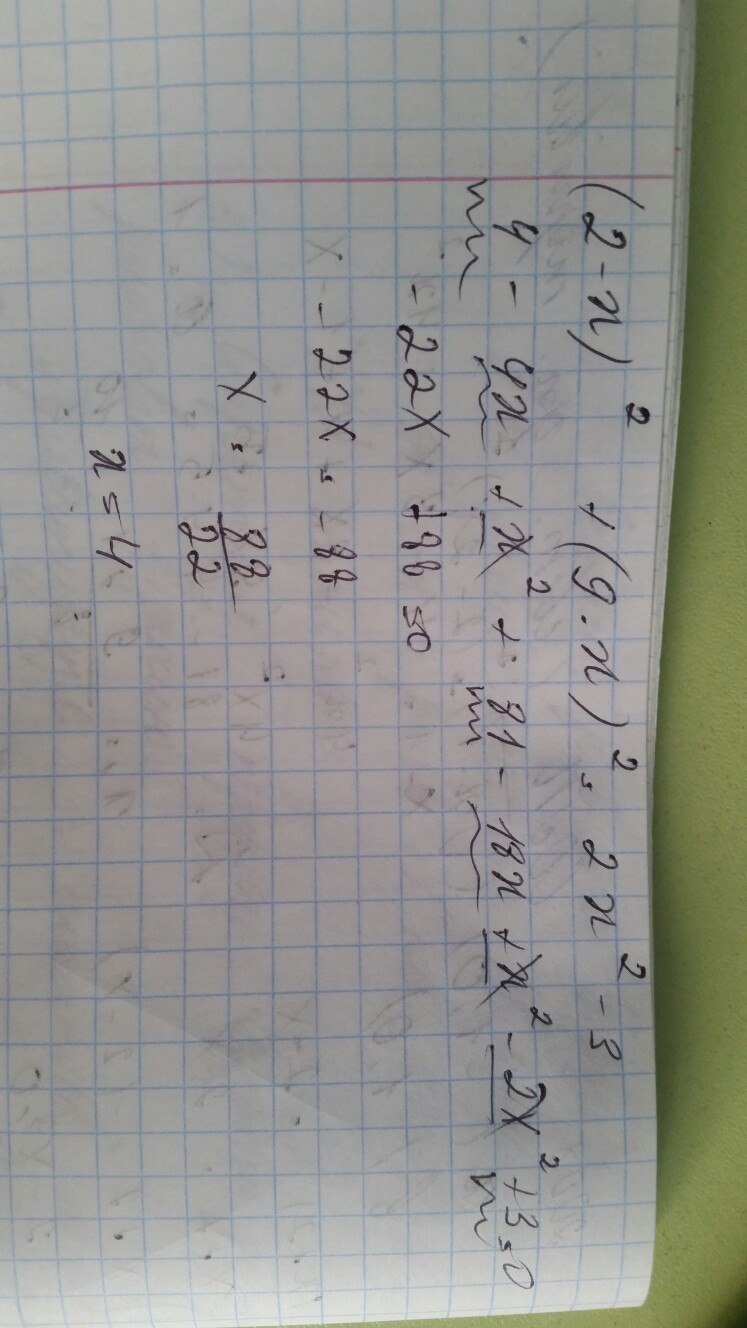 (2-x)² + (9-x)² = 2x² - 3
4 - 4x + x² + 81 - 18x + x² - 2x² + 3 = 0
- 22x + 88 = 0
- 22x = - 88
x = 88/22
x = 4